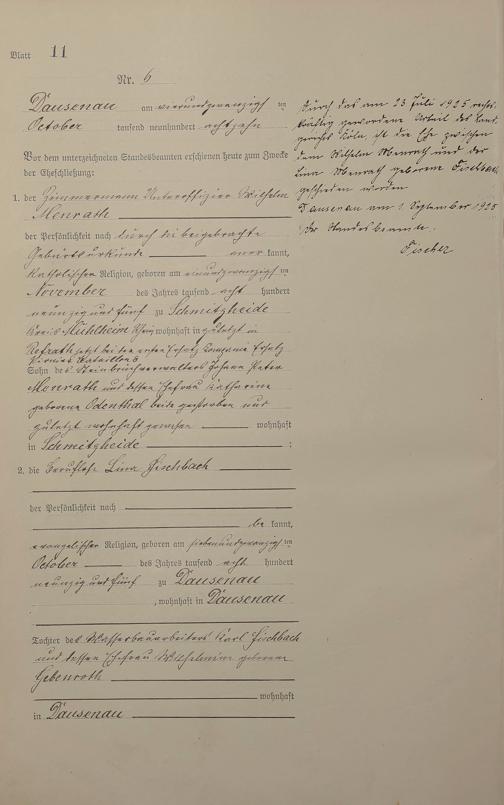 Blatt 11
Nr. 6
Dausenau am vierundzwanzigsten
October tausend neunhundert achtzehn
Vor dem unterzeichneten Standesbeamten erschienen heute zum Zwecke
der Eheschließung:
1. der Zimmermann Unteroffizier Wilhelm
Monrath
der Persönlichkeit nach durch die beigebrachte
Geburtsurkunde anerkannt,
katholischer Religion, geboren am einundzwanzigsten
November des Jahres tausend acht hundert
neunzig und fünf zu Schmitzheide
Kreis Mühlheim Rhein, wohnhaft in zuletzt in
Refrath jetzt bei der ersten Ersatz Compagnie Ersatz
Pionier Bataillons
Sohn des Steinbruchverwalters Johann Peter
Monrath und dessen Ehefrau Katharina
geborene Odenthal beide gestorben und
zuletzt wohnhaft gewesen wohnhaft
in Schmitzheide ;
2. die berufslose Lina Fischbach
der Persönlichkeit nach
bekannt,
evangelischer Religion, geboren am siebenundzwanzigsten
October des Jahres tausend acht hundert
neunzig und fünf zu Dausenau
, wohnhaft in Dausenau
Tochter des Wasserbauarbeiters Karl Fischbach
und dessen Ehefrau Wilhelmine geborene
Gebenroth
wohnhaft
in Dausenau
Durch das am 23 Juli 1925 rechts-
kräftig gewordene Urteil des Land-
gerichts Köln, ist die Ehe zwischen
dem Wilhelm Monrath und der
Lina Monrath geborene Fischbach
geschieden worden
Dausenau am 1. September 1925
Der Standesbeamte.
Fischer